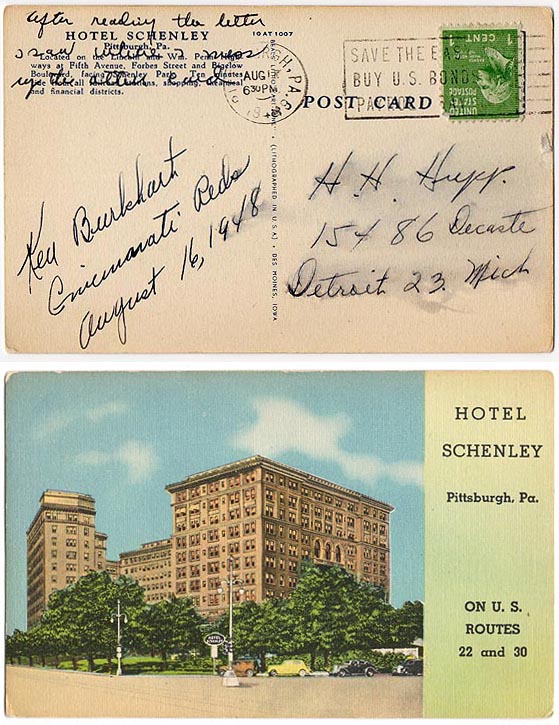 After reading the letter
I saw where I mess
up the other card
HOTEL SCHENLEY
Pittsburgh, Pa.
Located on the Lincoln and Wm. Penn High-
ways at Fifth Avenue, Forbes Street and Bigelow
Boulevard, facing Schenley Park. Ten minutes
and financial districts.
10AT1007
PITTSBURGH, PA.
AUG 16
6 30 PM
1948
SAVE THE EAS
BUY U.S. BONDS
POST CARD
UNITED
STATES
POSTAGE
1 CENT
(LITHOGRAPHED IN U.S.A.) DES MOINES, IOWA
Ken Burkhart
Cincinnati Reds
August 16, 1948
H. H. Hupp.
15486 Decaste
Detroit 23 Mich
HOTEL
SCHENLEY
Pittsburgh, Pa.
ON U. S.
ROUTES
22 and 30
HOTEL
SCHENLEY